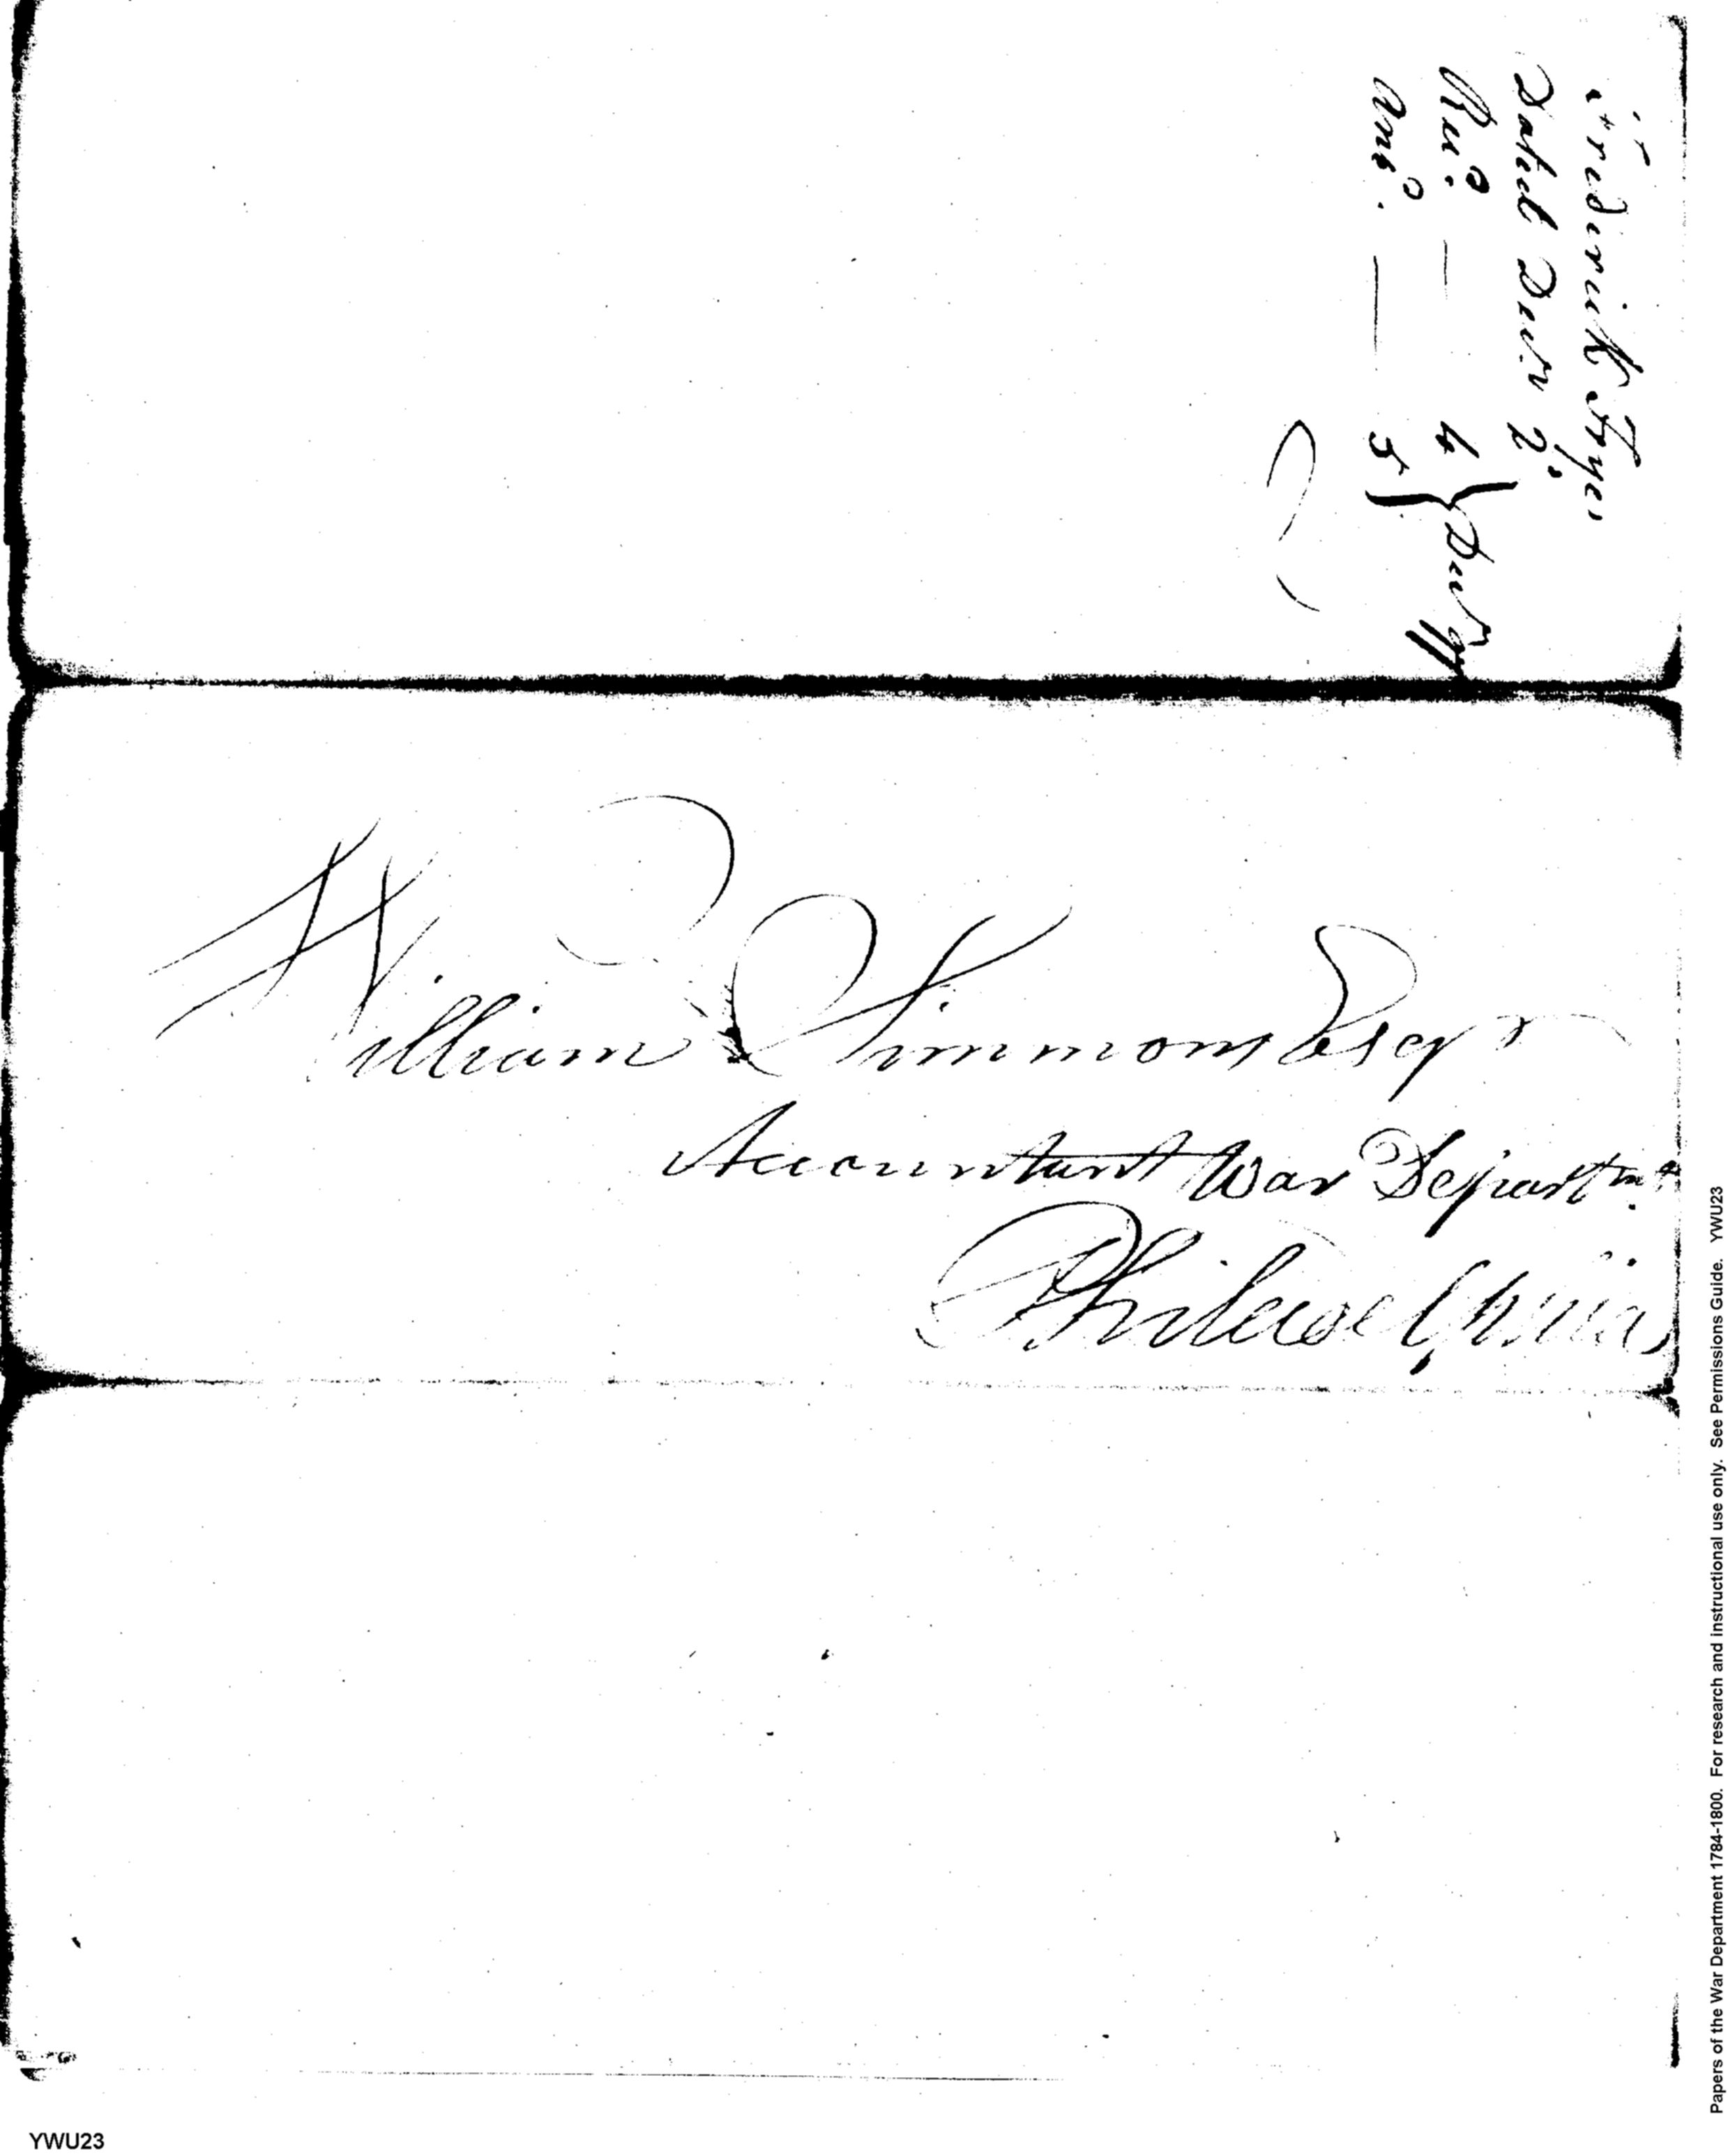 Frederick Frye,
Dated Decr. 2.
Recd. — 4
Ansd. — 5 } Decr. 97
William Simmons Esqr
Accountant War Departmt.
Philadelphia
Papers of the War Department 1784-1800. For research and instructional use only. See Permissions Guide. YWU23
YWU23